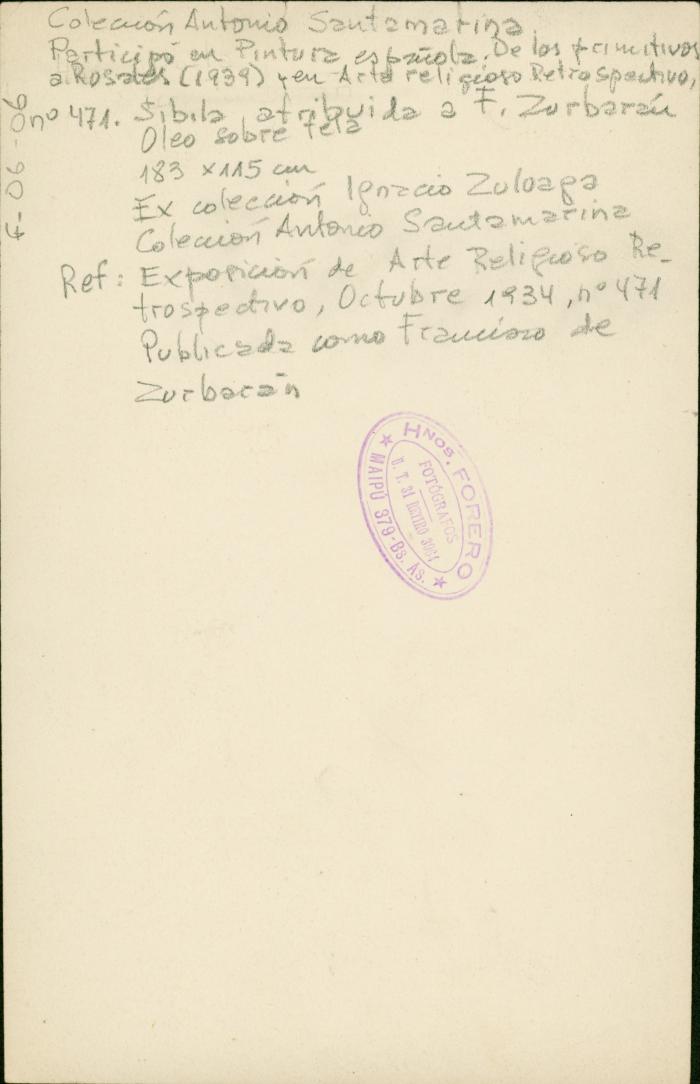 Colección Antonio Santamarina
Participó en Pintura española. De los primitivos
a Rosales (1939) y en Arte religioso Retrospectivo,
nº 471. Sibila atribuida a F. Zurbarán
Oleo sobre tela
183 x 115 cm
Ex colección Ignacio Zuloaga
Colección Antonio Santamarina
Ref: Exposición de Arte Religioso Re-
trospectivo, Octubre 1934, nº 471
Publicada como Francisco de
Zurbarán
4-06-06
HNOS. FORERO
FOTÓGRAFOS
U. T. 31 RETIRO 3064
MAIPÚ 379-BS. AS.